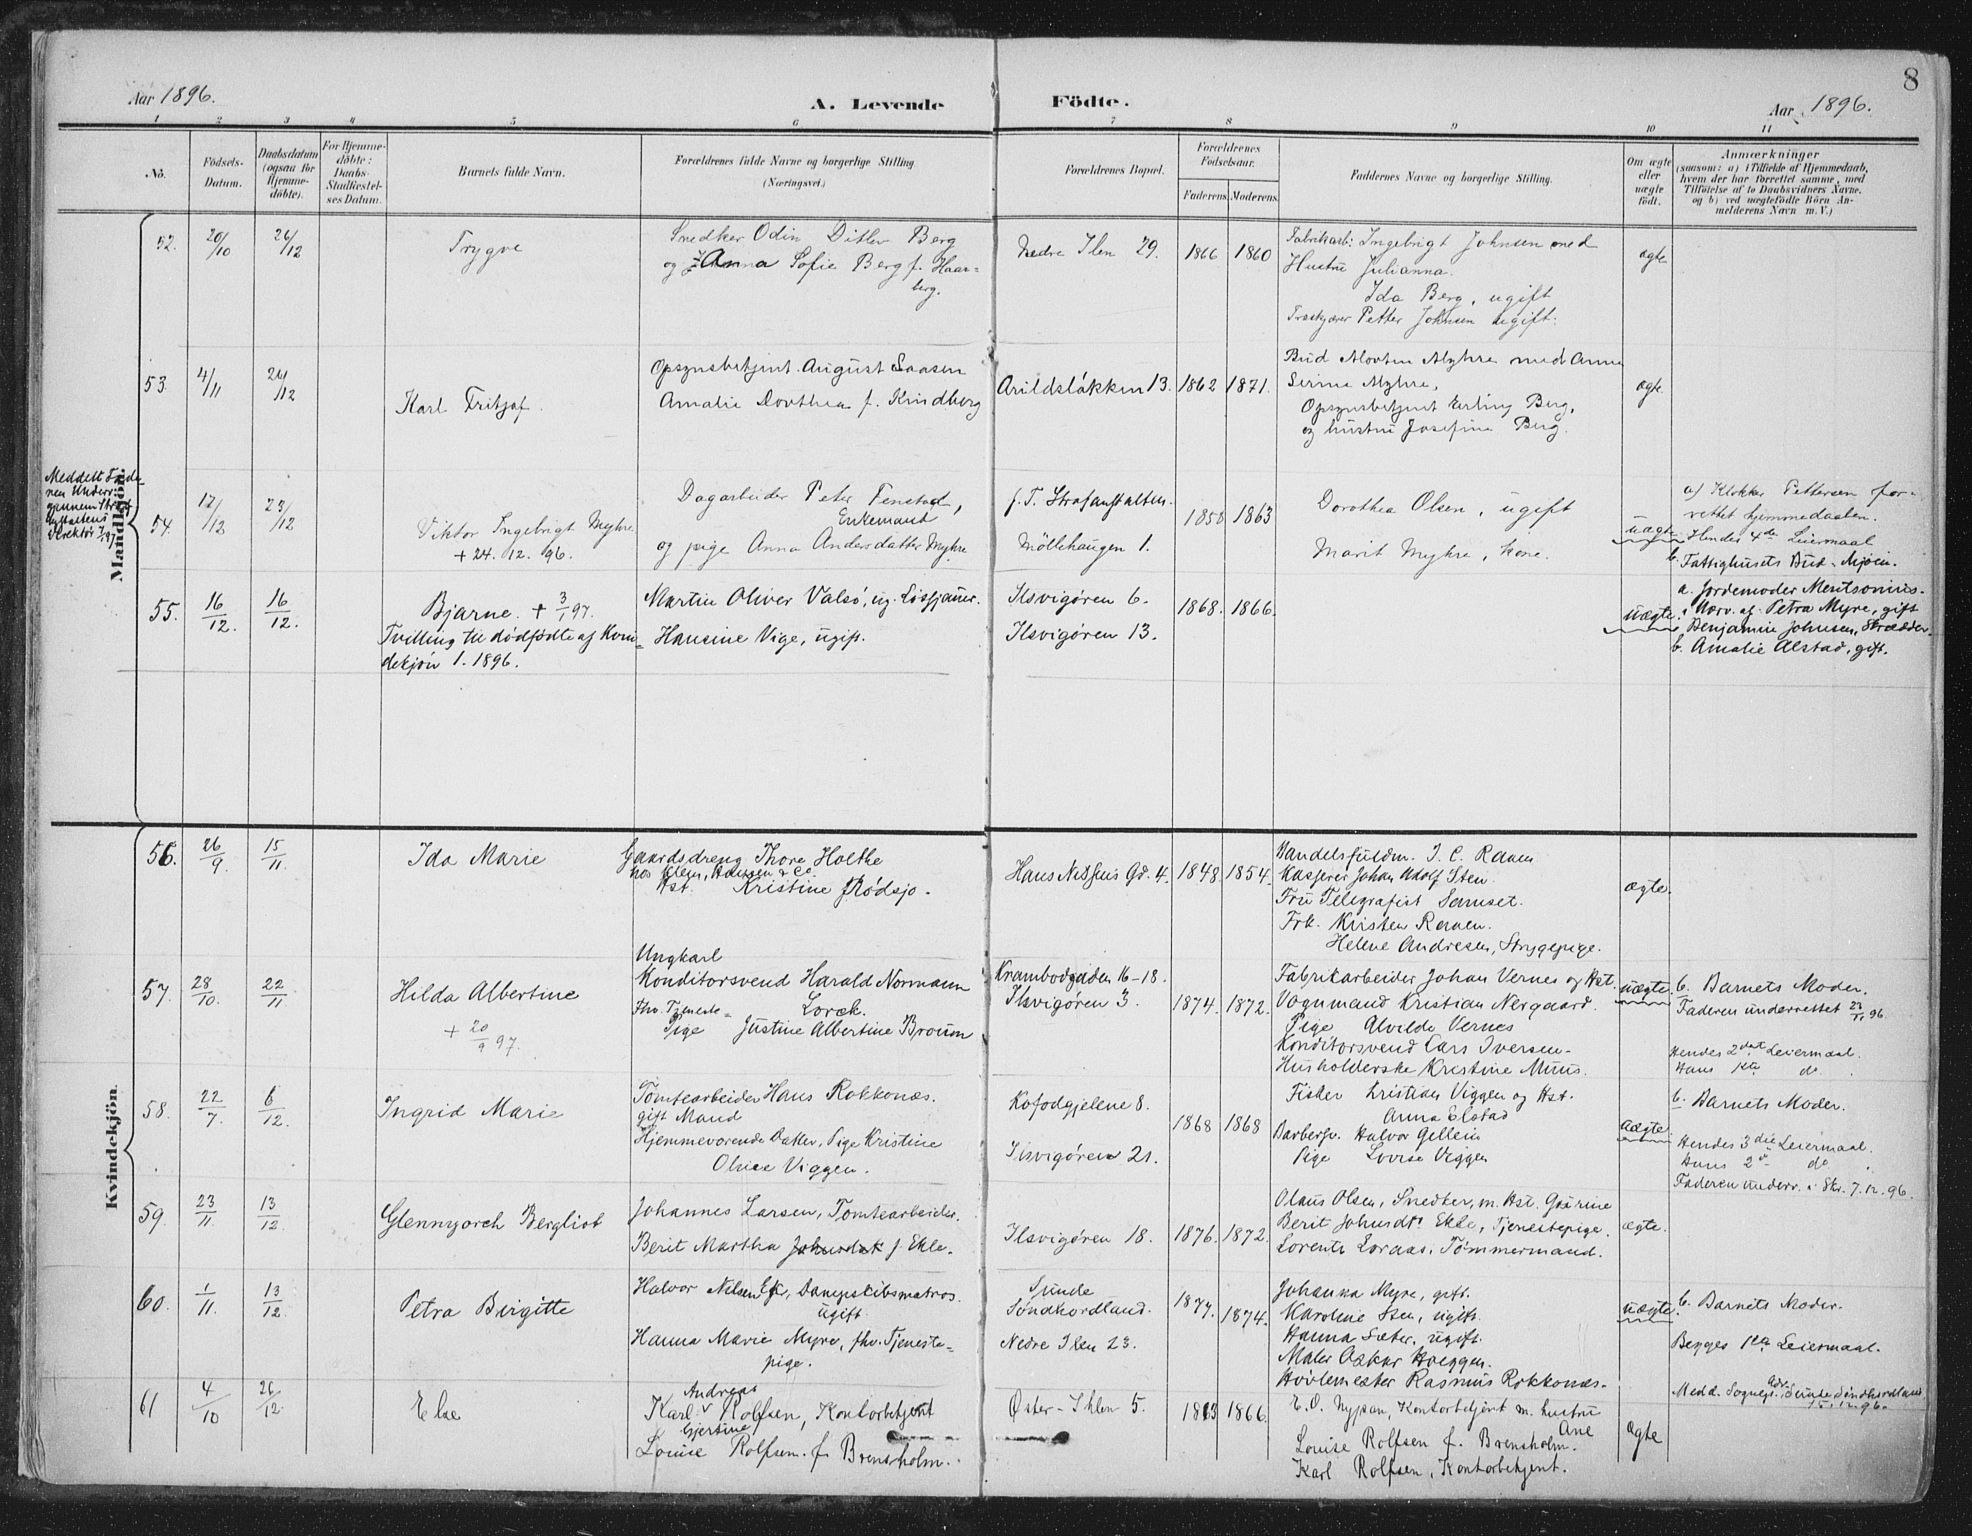 8
Aar 1896.
A. Levende Födte.
Aar 1896.
1 2 3 4 5 6 7 8 9 10 11
No.
Födsels-Datum.
Daabsdatum (ogsaa for Hjemme-döbte).
For Hjemme-döbte: Daabs-Stadfæstel-ses Datum.
Barnets fulde Navn.
Forældrenes fulde Navne og borgerlige Stilling.
(Næringsvei.)
Forældrenes Bopæl.
Forældrenes Födselsaar.
Faderens. Moderens.
Faddernes Navne og borgerlige Stilling.
Om ægte eller uægte födt.
Anmærkninger
(saasom: a) i Tilfælde af Hjemmedaab,
hvem der har forrettet samme, med
Tilföielse af to Daabsvidners Navne.
og b) ved uægtefödte Börn An-
melderens Navn m. V.)
Mandkjön.
52. 20/10 26/12
Trygve
Snedker Odin Ditlev Berg
og Anna Sofie Berg f. Haar-
berg.
Nedre Ilen 29. 1866 1860
Fabrikarb: Ingebrigt Johnsen med
Hustru Julianna.
Ida Berg, ugift
Petter Johnsen ugift.
ægte
53. 4/11 26/12
Karl Fritjof.
Opsynsbetjent August Saasen
Amalie Dorthea f. Kindberg
Arildsløkken 13. 1862 1871.
Bud Morten Myhre med Anna
Serine Myhre,
Opsynsbetjent Erling Berg,
og hustru Josefine Berg.
ægte
54. 12/12 23/12
Viktor Ingebrigt Myhre
+ 24. 12. 96.
Dagarbeider Peter Fenstad,
Enkemand
og pige Anna Andersdatter Myhre
f. T. Strafanstalten.
Möllehaugen 1.
1858 1863
Dorothea Olsen, ugift
Marit Myhre, kone.
uægte
af Klokker Pettersen for-
rettet hjemmedaaben.
Hendes 4de Leiermaal
b. Fattighusets Bud
55. 16/12. 16/12.
Bjarne. + 3/1 97.
Tvilling til dødfødte af Kvin-
dekjön 1. 1896.
Martin Oliver Valsö, ug.
Hansine Vige, ugift.
Ilsvigøren 6.
Ilsvigøren 13.
1868. 1866.
uægte.
a. Jordemoder
i Nærv. af Petra Myre, gift
Benjamine Johnsen,
b. Amalie Alstad, gift.
Kvindekjön.
56. 26/9 15/11.
Ida Marie
Gaardsdreng Thore Holthe
hos Klem, Hansen & Co.
Hst. Kristine f Rödsjo.
Hans Nissens Gd. 4. 1848. 1854.
Handelsfuldm. J. C. Raaen
Kasserer Johan Adolf Sten.
Fru Telegrafist Samset.
Frk. Kirsten Raaen.
Helene Andresen, Strygepige.
ægte.
57. 28/10. 22/11
Hilda Albertine
+ 20/9 97.
Ungkarl
Konditorsvend Harald Normann
Lorck.
fhv. Tjeneste-
Pige Justine Albertine Broum
Krambodgaden 16-18.
Ilsvigøren 3.
1874. 1872.
Fabrikarbeider Johan Vernes og Hst.
Vognmand Kristian Nergaard.
Pige Alvilde Vernes
Konditorsvend Lars Iversen.
Husholderske Kristine Muus.
uægte.
b. Barnets Moder.
Faderen underrettet 23/11 96
Hendes 2det Leiermaal.
Hans 1ste do.
58. 22/7. 6/12.
Ingrid Marie
Tomtearbeider Hans Rokkonæs.
gift Mand
Hjemmeværende Datter, Pige Kristine
Olsine Viggen.
Kofodgjelene 8.
Ilsvigøren 21.
1868 1868
Fisker Kristian Viggen og Hst.
Anna Elstad
Halvor Gellein
Pige Lovise Viggen
uægte.
b. Barnets Moder.
Hendes 3die Leiermaal.
Hans 2det do.
Faderen underr. i Skr. 7.12.96.
59. 23/11 13/12.
Glennyorch Bergliot
Johannes Larsen, Tomtearbeider.
Berit Martha Johnsdat f. Ekle.
Ilsvigøren 18. 1876. 1872.
Olaus Olsen, Snedker, m. Hst. Gurine
Berit Johnsdt. Ekle, Tjenestepige.
Lorents Loraas, Tømmermand.
ægte.
60. 1/11. 13/12.
Petra Birgitte
Halvor Nelsen Eg, Dampskibsmatros.
ugift
Hanna Marie Myre, fhv. Tjeneste-
pige.
Söndhordland.
Nedre Ilen 23.
1877. 1874.
Johanna Myre, gift.
Karoline Sten, ugift.
Hanna Sæter, ugift.
Maler Oskar Hoeggen.
Hovlemester Rasmus Rokkonæs.
uægte.
b. Barnets Moder.
Begges 1ste Leiermaal.
Medd. Sognepr. Söndhordland
61 4/10 26/12
Else
Andreas
Karl v Rolfsen, Kontorbetjent
Gjertine
Louise Rolfsen. f. Brensholm.
Øster-Ihlen 5. 1863 1866.
E. O. Nypan, Kontorbetjent m. hustru
Ane
Louise Rolfsen f. Brensholm.
Karl Rolfsen, Kontorbetjent.
ægte